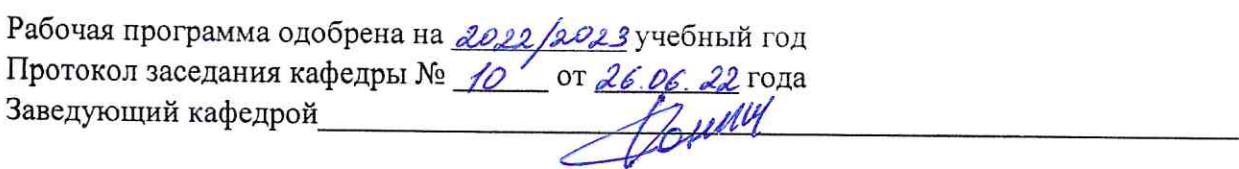 Рабочая программа одобрена на 2022/2023 учебный год
Протокол заседания кафедры № 10 от 26.06.22 года
Заведующий кафедрой